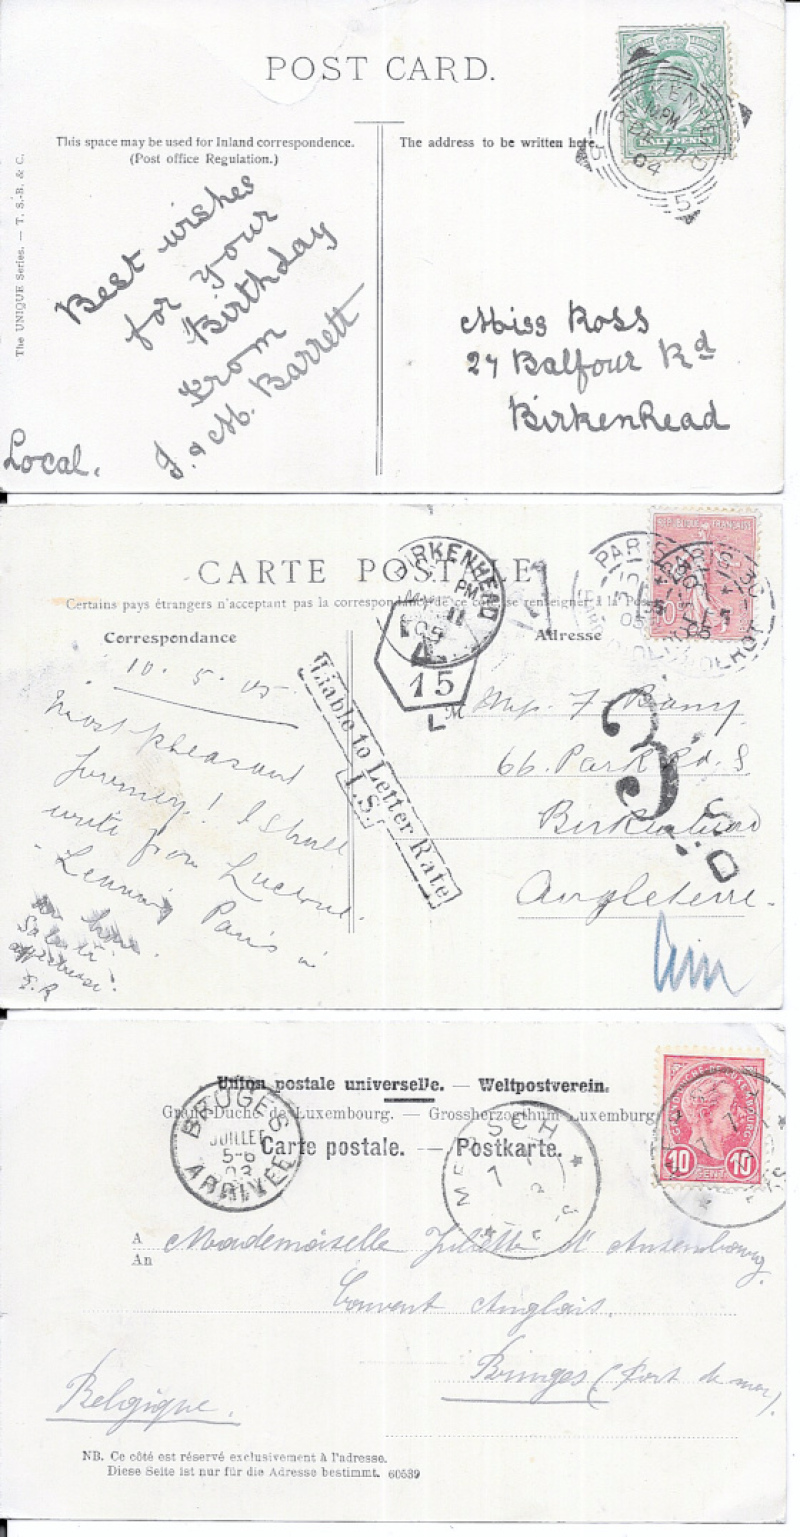 POST CARD.
This space may be used for Inland correspondence.
(Post office Regulation.)
The address to be written here.
The UNIQUE Series. — T. S.-B. & C.
HALF PENNY
BIRKENHEAD
10 PM
DE 17
04
5
5
Best wishes
for your
Birthday
From
J. & M. Barrett
Local.
Miss Ross
27 Balfour Rd
Birkenhead
CARTE POSTALE
Certains pays étrangers n'acceptent pas la correspondance de ce côté, se renseigner à la Poste
Correspondance
Adresse
BIRKENHEAD
PM
MY 11
05
15
L
REPUBLIQUE FRANÇAISE
10
PARIS
05
Liable to Letter Rate
I.S.
3
D
10. 5. 05
Most pleasant
Journey! I shall
write from
Paris
E.R
M
66. Park Rd. S
Birkenhead
Angleterre.
Union postale universelle. — Weltpostverein.
Grand-Duché de Luxembourg. — Grossherzogthum Luxemburg
Carte postale. — Postkarte.
BRUGES
JUILLET
5-6
03
ARRIVEE
MERSCH
10 CENT 10
A
An
Mademoiselle Juliette d'Ansembourg.
Couvent Anglais.
Bruges (Port de mer).
Belgique.
NB. Ce côté est réservé exclusivement à l'adresse.
Diese Seite ist nur für die Adresse bestimmt. 60539